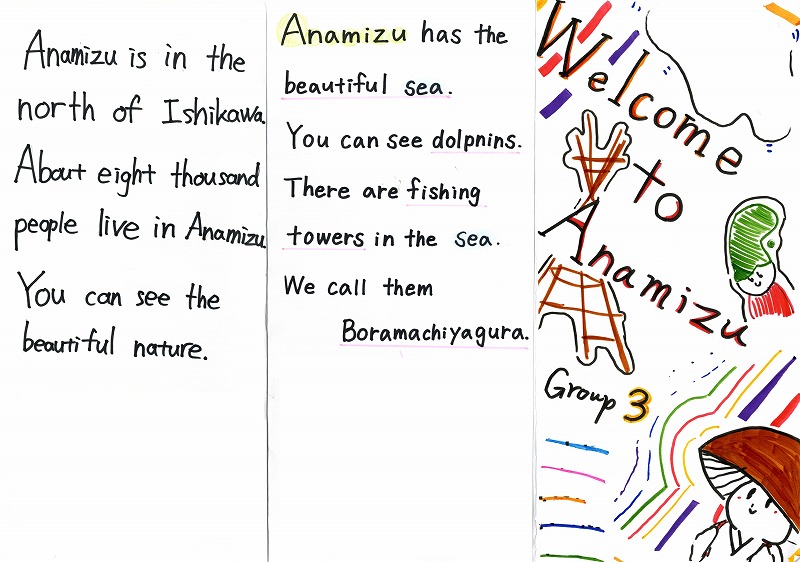 Anamizu is in the
north of Ishikawa.
About eight thousand
people live in Anamizu.
You can see the
beautiful nature.
Anamizu has the
beautiful sea.
You can see dolpnins.
There are fishing
towers in the sea.
We call them
Boramachiyagura.
Welcome
to
Anamizu
Group 3